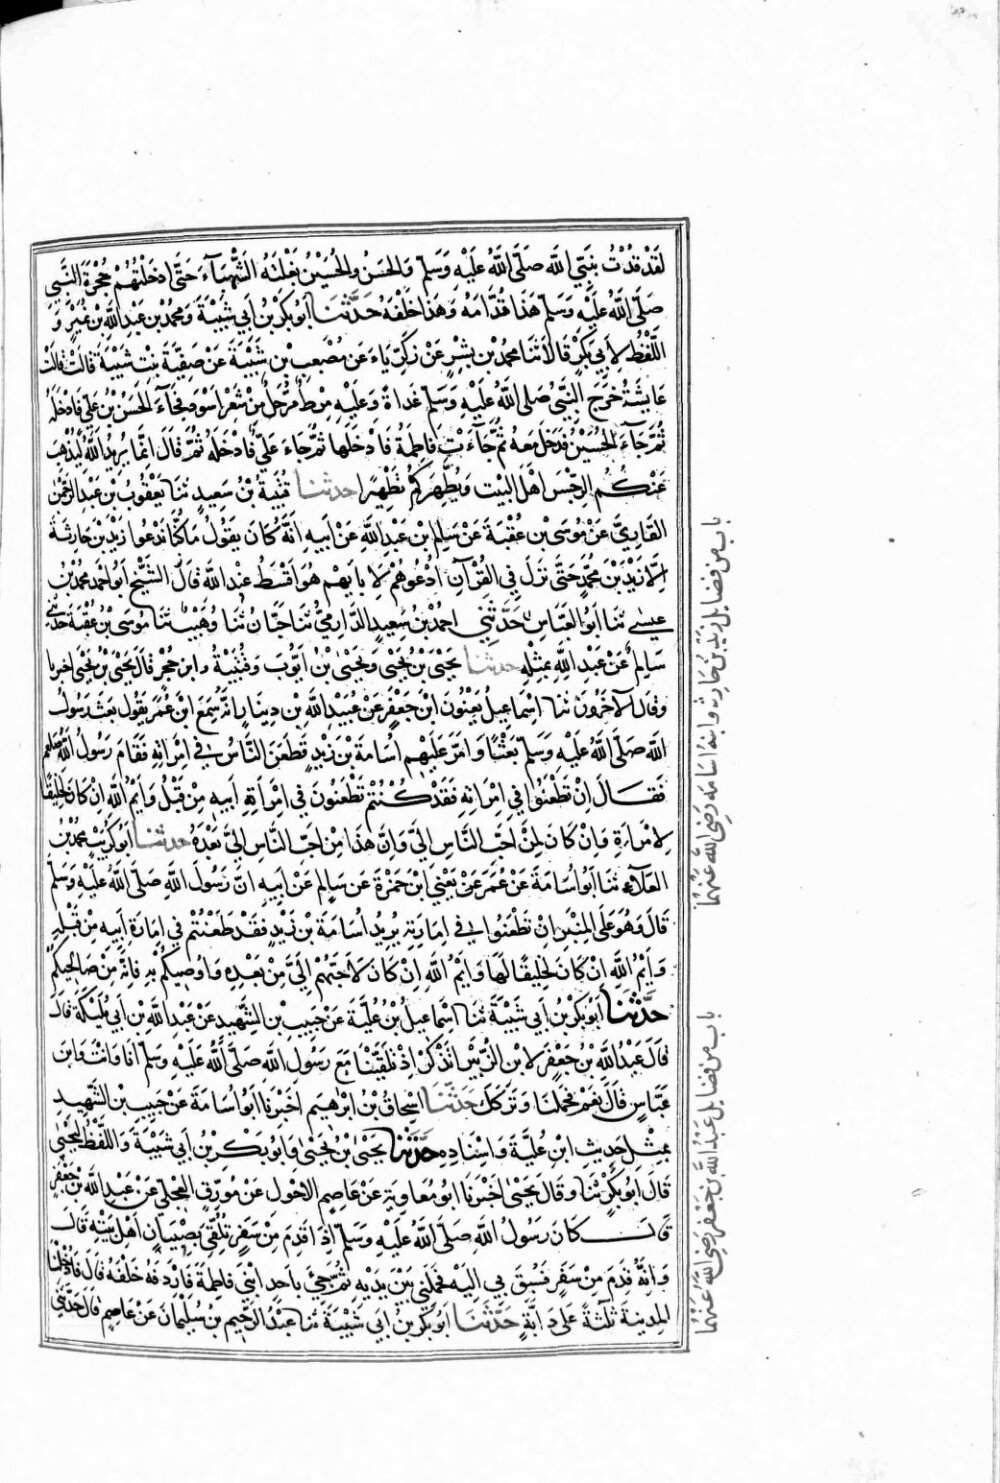 لَقَدْ قُدْتُ بِنَبِيِّ اللَّه صَلَّى اللَّهُ عَلَيْهِ وَسَلَّم وَالْحَسَنُ وَالْحُسَيْنُ بَغْلَتَهُ الشَّهْبَآءَ حَتَّى ادخَلْتُهُمْ حُجْرَةَ النَّبِيِّ
صَلَّى اللَّهُ عَلَيْهِ وَسَلَّمَ هَذَا قُدَّامَهُ وَهَذَا خَلْفَهُ حَدَّثَنَا اَبُو بَكْرِ بْنُ اَبِي شَيْبَةَ وَمُحَمَّدُ بْن عَبْدِ اللَّهِ بْنِ نُمَيْرٍ وَ
اللَّفْظُ لِاَبِي بَكْرٍ قَالَا ثَنَا مُحَمَّدُ بْن بِشْرٍ عَنْ زَكَرِيَّاءَ عَن مُصْعَبِ بْنِ شَيْبَةَ عَنْ صَفِيَّةَ بِنْتِ شَيْبَةَ قَالَتْ قَالَتْ
عَايِشَةُ خَرَجَ النَّبِيُّ صَلَّى اللَّهُ عَلَيْهِ وَسَلَّمَ غَدَاةً وَعَلَيْهِ مِرْطٌ مُرَحَّلٌ مِنْ شَعْرٍ اَسْوَد فَجَآءَ الْحَسَنُ بْنُ عَلِيٍّ فَادْخَلَهُ
ثُمَّ جَآءَ الْحُسَيْنُ فَدَخَلَ مَعَهُ ثُمَّ جَآءَتْ فَاطِمَةُ فَادْخَلَهَا ثُمَّ جَاءَ عَلِيٌّ فَادْخَلَهُ ثُمَّ قَالَ اِنَّمَا يُرِيدُ اللَّهُ لِيُذْهِبَ
عَنْكُمُ الرِّجْسَ اَهْلَ الْبَيْتِ وَيُطَهِّرَكُمْ تَطْهِيرًا حدثنا قُتَيْبَةُ بْنُ سَعِيدٍ ثَنَا يَعْقُوبُ بْنُ عَبْدِ الرَّحْمَنِ
الْقَارِيُّ عَنْ مُوسَى بْنِ عُقْبَةَ عَنْ سَالِمِ بْنِ عَبْدِ اللَّهِ عَنْ اَبِيهِ اَنَّهُ كَانَ يَقُولُ مَا كُنَّا نَدْعُوا زَيْدَ بْنَ حَارِثَةَ
اِلَّا زَيْدَ بْنَ مُحَمَّدٍ حَتَّى نَزَلَ فِي الْقُرْآنِ اُدْعُوهُمْ لِابَايِهِمْ هُوَ اَقْسَطُ عِنْدَ اللَّهِ قَالَ الشَّيْخُ اَبُو اَحْمَدَ مُحَمَّدُ بْنُ
عِيسَى ثَنَا اَبُو الْعَبَّاسِ حَدَّثَنِي اَحْمَدُ بْنُ سَعِيدٍ الدَّارِمِيُّ ثَنَا حَبَّانُ ثَنَا وُهَيْبٌ ثَنَا مُوسَى بْنُ عُقْبَةَ حَدَّثَنِي
سَالِمٌ عَنْ عَبْدِ اللَّهِ بِمِثْلِهِ حدثنا يَحْيَى بْنُ يَحْيَى وَيَحْيَى بْنُ اَيُّوبَ وَقُتَيْبَةُ وَابْن حُجْرٍ قَالَ يَحْيَى بْنُ يَحْيَى اخبرنا
وَقَالَ الْآخَرُونَ ثَنَا اِسْمَاعِيلُ يَعْنُونَ ابْنَ جَعْفَرٍ عَنْ عُبَيْدِ اللَّهِ بْنِ دِينَارٍ اَنَّهُ سَمِعَ ابْنَ عُمَرَ يَقُولُ بَعَثَ رَسُولُ
اللَّهِ صَلَّى اللَّهُ عَلَيْهِ وَسَلَّمَ بَعْثًا وَاَمَّرَ عَلَيْهِمْ اُسَامَةَ بْنَ زَيْدٍ فَطَعَنَ النَّاسُ فِي اِمْرَاتِهِ فَقَامَ رَسُولُ اللَّهِ صلعم
فَقَالَ اِنْ تَطْعَنُوا فِي اِمْرَاتِهِ فَقَدْ كُنْتُمْ تَطْعَنُونَ فِي اِمْرَأَةِ اَبِيهِ مِنْ قَبْلُ وَاَيْمُ اللَّهِ اِنْ كَانَ لَخَلِيقًا
لِلْاِمَارَةِ وَاِنْ كَانَ لَمِنْ اَحَبِّ النَّاسِ اِلَيَّ وَاِنَّ هَذَا مِنْ اَحَبِّ النَّاسِ اِلَيَّ بَعْدَهُ حدثنا اَبُو كُرَيْبٍ مُحَمَّدُ بْنُ
الْعَلَآءِ ثَنَا اَبُو اُسَامَةَ عَنْ عُمَرَ يَعْنِي ابْنَ حَمْزَةَ عَنْ سَالِمٍ عَنْ اَبِيهِ اَنَّ رَسُولَ اللَّهِ صَلَّى اللَّهُ عَلَيْهِ وَسَلَّمَ
قَالَ وَهُوَ عَلَى الْمِنْبَرِ اِنْ تَطْعَنُوا فِي اِمَارَتِهِ يُرِيدُ اُسَامَةَ بْنَ زَيْدٍ فَقَدْ طَعَنْتُمْ فِي اِمَارَةِ اَبِيهِ مِنْ قَبْلِهِ
وَاَيْمُ اللَّهِ اِنْ كَانَ لَخَلِيقًا لَهَا وَاَيْمُ اللَّهِ اِنْ كَانَ لَاَحَبَّهُمْ اِلَيَّ مِنْ بَعْدِهِ وَاُوصِيكُمْ بِهِ فَاِنَّهُ مِنْ صَالِحِيكُمْ
حَدَّثَنَا اَبُو بَكْرِ بْنُ اَبِي شَيْبَةَ ثَنَا اِسْمَاعِيلُ بْنُ عُلَيَّةَ عَنْ حَبِيبِ بْنِ الشَّهِيدِ عَنْ عَبْدِ اللَّهِ بْنِ اَبِي مُلَيْكَةَ قَالَ
قَالَ عَبْدُ اللَّهِ بْنُ جَعْفَرٍ لِابْنِ الزُّبَيْرِ اَتَذْكُرُ اِذْ تَلَقَّيْنَا مَعَ رَسُولِ اللَّهِ صَلَّى اللَّهُ عَلَيْهِ وَسَلَّمَ اَنَا وَاَنْتَ وَابْنُ
عَبَّاسٍ قَالَ نَعَمْ فَحَمَلَنَا وَتَرَكَكَ حَدَّثَنَا اِسْحَاقُ بْنُ اِبْرَهِيمَ اَخْبَرَنَا اَبُو اُسَامَةَ عَنْ حَبِيبِ بْنِ الشَّهِيدِ
بِمِثْلِ حَدِيثِ ابْنِ عُلَيَّةَ وَاِسْنَادِهِ حَدَّثَنَا يَحْيَى بْنُ يَحْيَى وَاَبُو بَكْرِ بْنُ اَبِي شَيْبَةَ وَاللَّفْظُ لِيَحْيَى
قَالَ اَبُو بَكْرٍ ثَنَا وَقَالَ يَحْيَى اَخْبَرَنَا اَبُو مُعَاوِيَةَ عَنْ عَاصِمٍ الْاَحْوَلِ عَنْ مُوَرِّقٍ الْعِجْلِيِّ عَنْ عَبْدِ اللَّهِ بْنِ جَعْفَرٍ
قَالَ كَانَ رَسُولُ اللَّهِ صَلَّى اللَّهُ عَلَيْهِ وَسَلَّمَ اِذَا قَدِمَ مِنْ سَفَرٍ تُلُقِّيَ بِصِبْيَانِ اَهْلِ بَيْتِهِ قَالَ
وَاِنَّهُ قَدِمَ مِنْ سَفَرٍ فَسُبِقَ بِي اِلَيْهِ فَحَمَلَنِي بَيْنَ يَدَيْهِ ثُمَّ جِيْءَ بِاَحَدِ ابْنَيْ فَاطِمَةَ فَارْدَفَهُ خَلْفَهُ قَالَ فَاُدْخِلْنَا
الْمَدِينَةَ ثَلَثَةً عَلَى دَابَّةٍ حَدَّثَنَا اَبُو بَكْرِ بْنُ اَبِي شَيْبَةَ ثَنَا عَبْدُ الرَّحِيمِ بْنُ سُلَيْمَانَ عَنْ عَاصِمٍ قَالَ حَدَّثَنِي
باب من فضايل زَيْدِ بْنِ حَارِثَة وابنه اُسَامَة رَضِيَ اللَّهُ عَنْهُمَا
باب من فضايل عَبْدِ اللَّهِ بْنِ جَعْفَر رَضِيَ اللَّهُ عَنْهُمَا